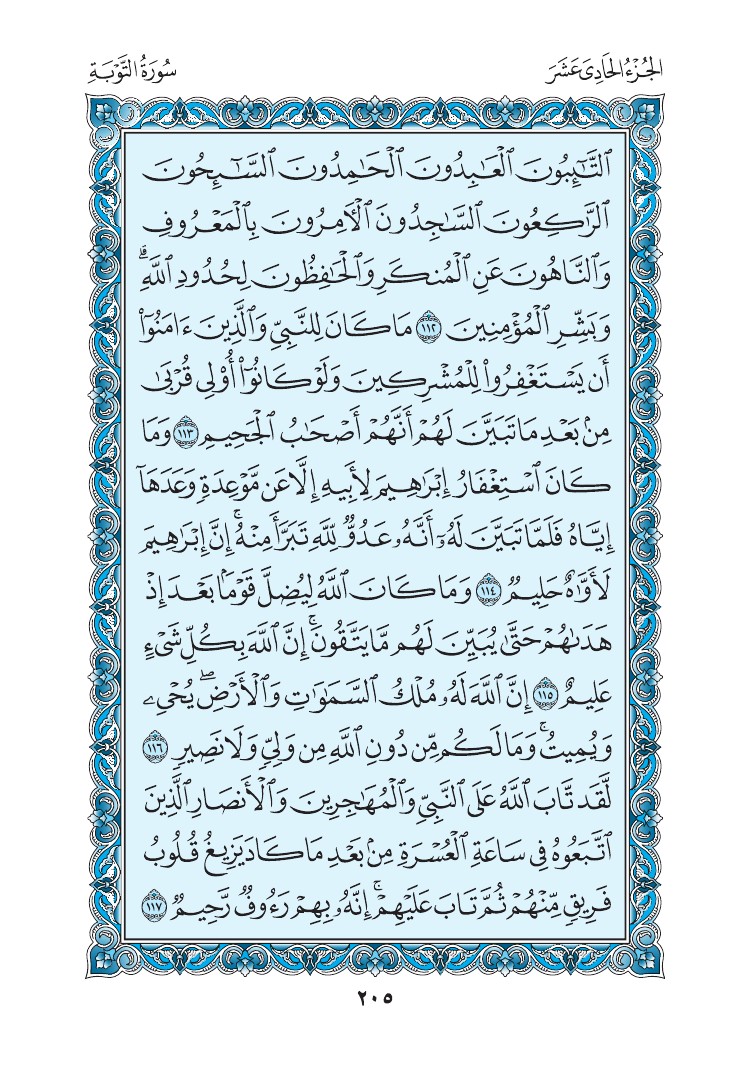 الجُزْءُ الحَادِىَ عَشَرَ
سُورَةُ التَّوۡبَةِ
ٱلتَّٰٓئِبُونَ ٱلۡعَٰبِدُونَ ٱلۡحَٰمِدُونَ ٱلسَّٰٓئِحُونَ
ٱلرَّٰكِعُونَ ٱلسَّٰجِدُونَ ٱلۡأٓمِرُونَ بِٱلۡمَعۡرُوفِ
وَٱلنَّاهُونَ عَنِ ٱلۡمُنكَرِ وَٱلۡحَٰفِظُونَ لِحُدُودِ ٱللَّهِۗ
وَبَشِّرِ ٱلۡمُؤۡمِنِينَ ١١٢ مَا كَانَ لِلنَّبِيِّ وَٱلَّذِينَ ءَامَنُوٓاْ
أَن يَسۡتَغۡفِرُواْ لِلۡمُشۡرِكِينَ وَلَوۡ كَانُوٓاْ أُوْلِي قُرۡبَىٰ
مِنۢ بَعۡدِ مَا تَبَيَّنَ لَهُمۡ أَنَّهُمۡ أَصۡحَٰبُ ٱلۡجَحِيمِ ١١٣ وَمَا
كَانَ ٱسۡتِغۡفَارُ إِبۡرَٰهِيمَ لِأَبِيهِ إِلَّا عَن مَّوۡعِدَةٖ وَعَدَهَآ
إِيَّاهُ فَلَمَّا تَبَيَّنَ لَهُۥٓ أَنَّهُۥ عَدُوّٞ لِّلَّهِ تَبَرَّأَ مِنۡهُۚ إِنَّ إِبۡرَٰهِيمَ
لَأَوَّٰهٌ حَلِيمٞ ١١٤ وَمَا كَانَ ٱللَّهُ لِيُضِلَّ قَوۡمَۢا بَعۡدَ إِذۡ
هَدَىٰهُمۡ حَتَّىٰ يُبَيِّنَ لَهُم مَّا يَتَّقُونَۚ إِنَّ ٱللَّهَ بِكُلِّ شَيۡءٍ
عَلِيمٌ ١١٥ إِنَّ ٱللَّهَ لَهُۥ مُلۡكُ ٱلسَّمَٰوَٰتِ وَٱلۡأَرۡضِۖ يُحۡيِۦ
وَيُمِيتُۚ وَمَا لَكُم مِّن دُونِ ٱللَّهِ مِن وَلِيّٖ وَلَا نَصِيرٖ ١١٦
لَّقَد تَّابَ ٱللَّهُ عَلَى ٱلنَّبِيِّ وَٱلۡمُهَٰجِرِينَ وَٱلۡأَنصَارِ ٱلَّذِينَ
ٱتَّبَعُوهُ فِي سَاعَةِ ٱلۡعُسۡرَةِ مِنۢ بَعۡدِ مَا كَادَ يَزِيغُ قُلُوبُ
فَرِيقٖ مِّنۡهُمۡ ثُمَّ تَابَ عَلَيۡهِمۡۚ إِنَّهُۥ بِهِمۡ رَءُوفٞ رَّحِيمٞ ١١٧
٢٠٥